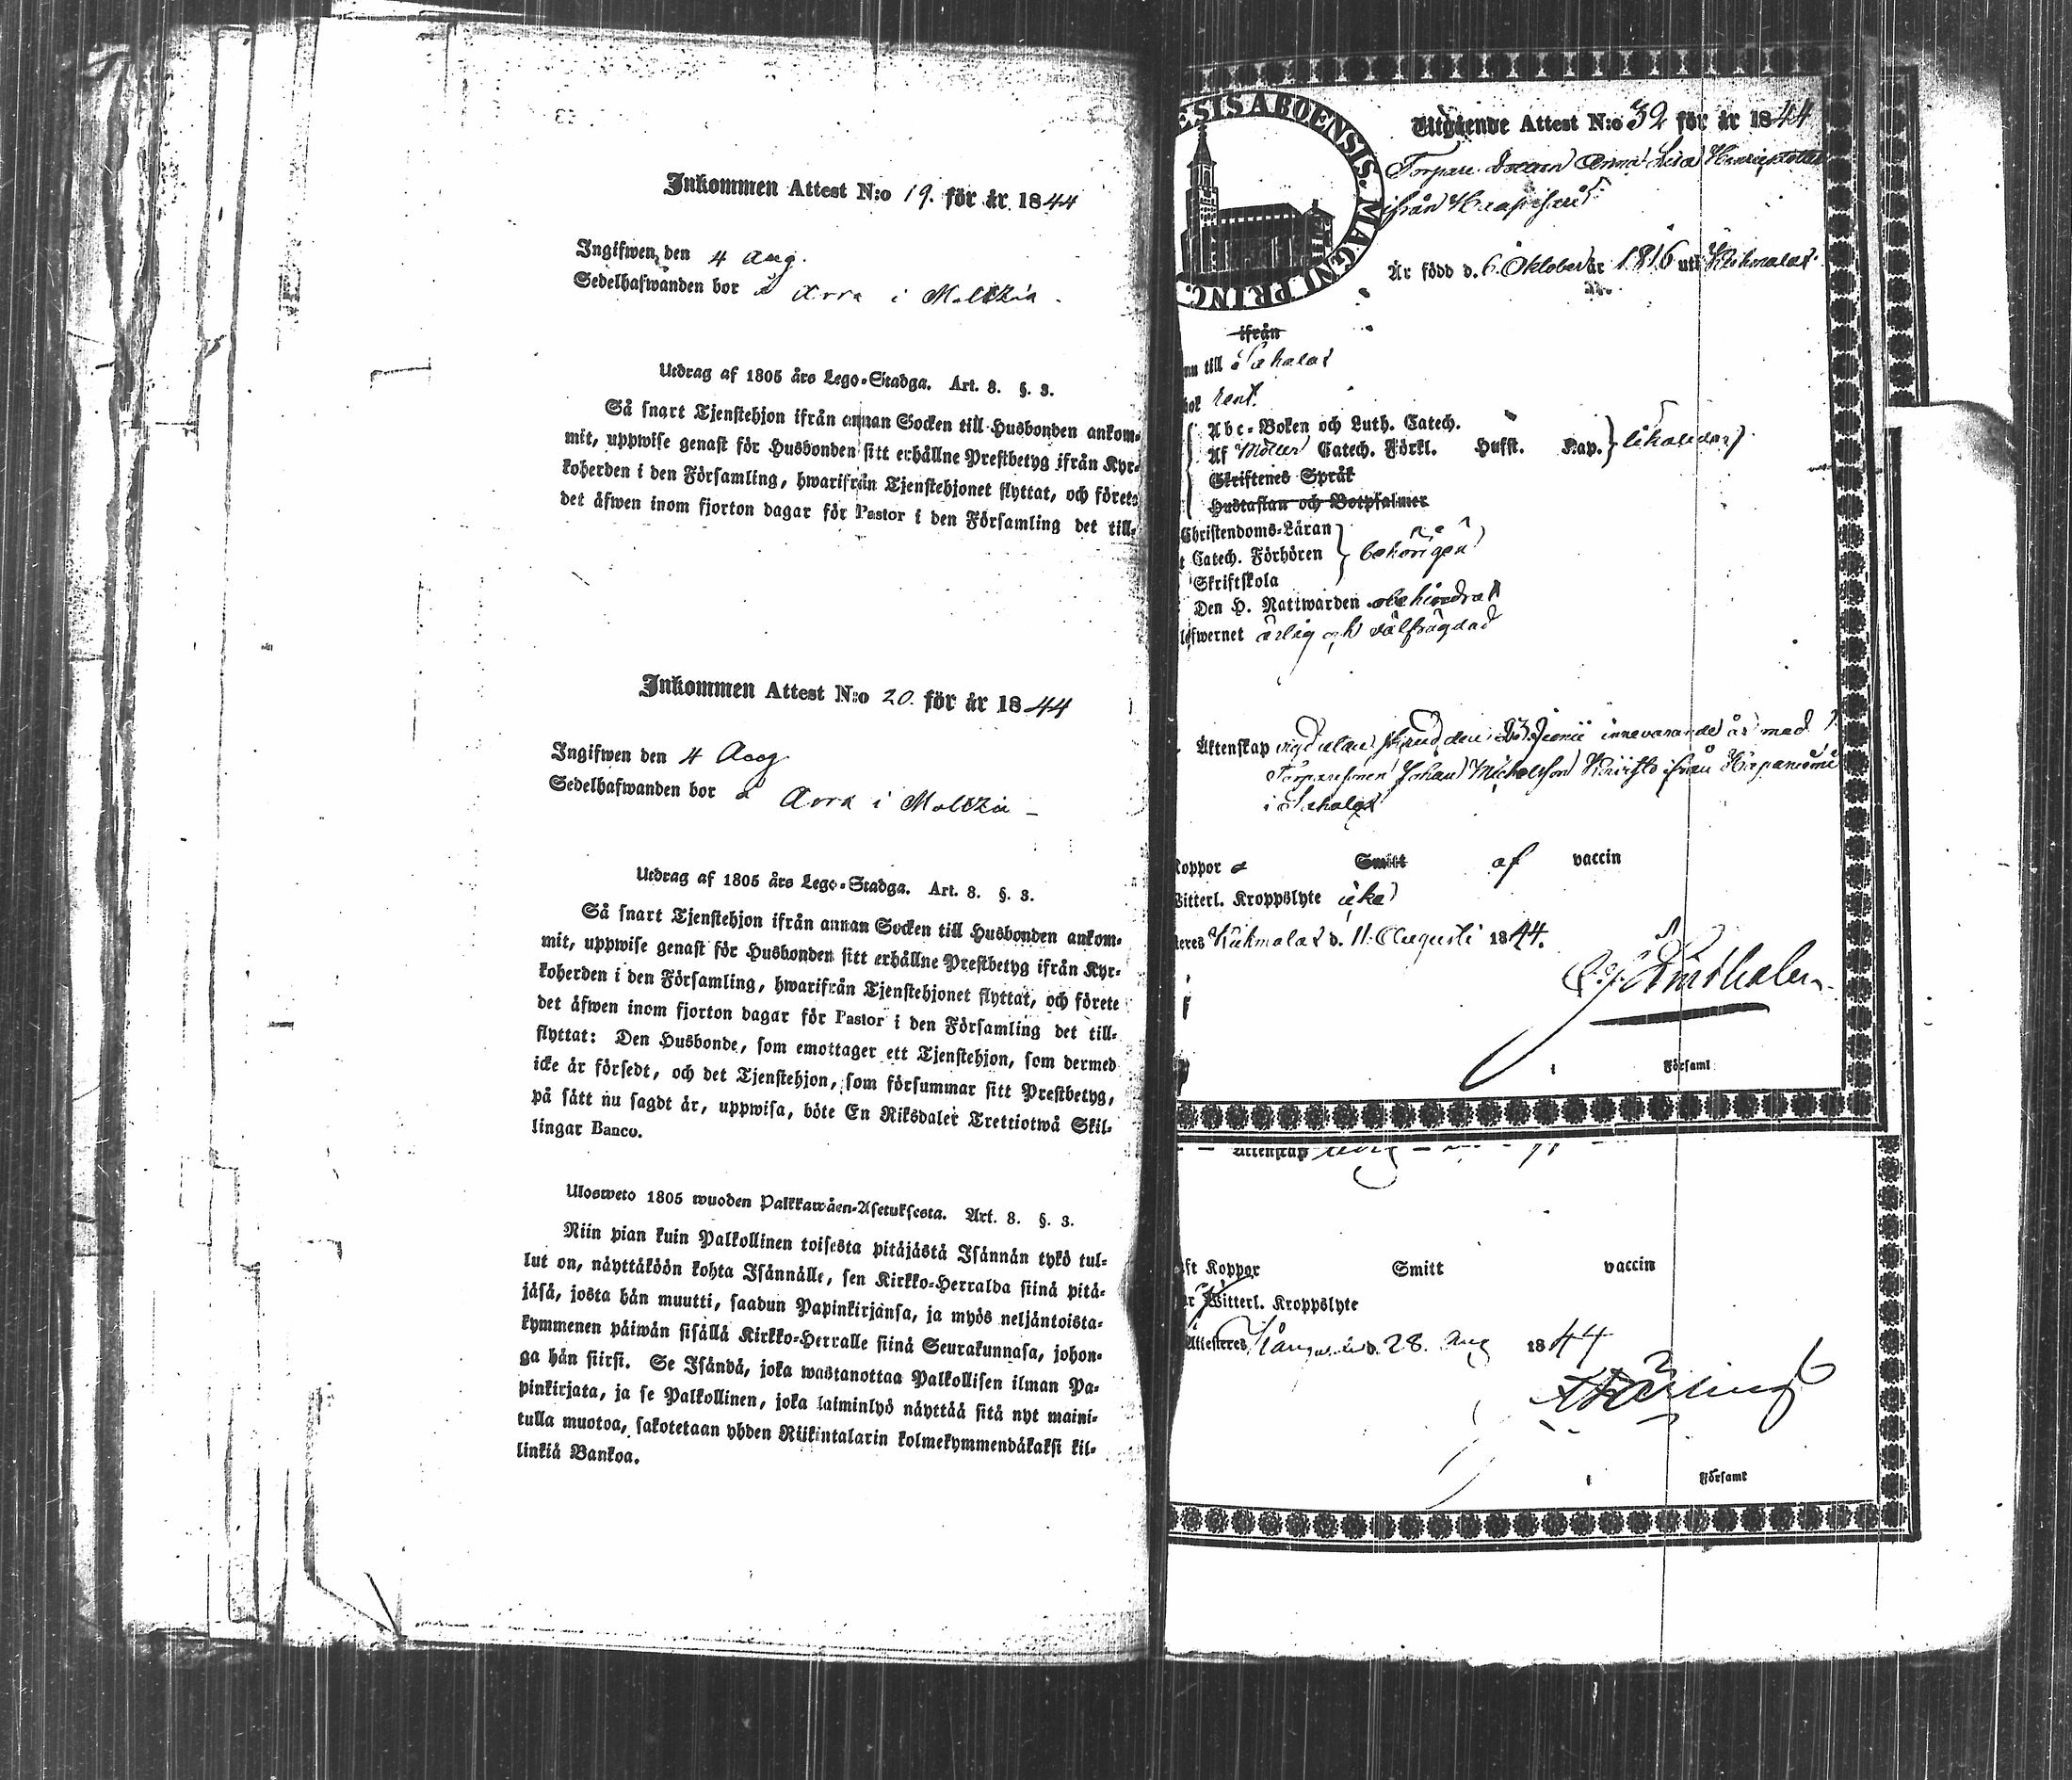 Inkommen Attest N:o 19. för år 1844
Ingifwen den 4 Aug.
Sedelhafwanden bor å Arra i Moltzia
Utdrag af 1805 års Lego-Stadga. Art. 8. §. 3.
Så snart Tjenstehjon ifrån annan Socken till Husbonden ankom-
mit, uppwise genast för Husbonden sitt erhållne Prestbetyg ifrån Kyr-
koherden i den Församling, hwarifrån Tjenstehjonet flyttat, och förete
det äfwen inom fjorton dagar för Pastor i den Församling det till-
Inkommen Attest N:o 20. för år 1844
Ingifwen den 4 Aug
Sedelhafwanden bor å Arra i Moltzia
Utdrag af 1805 års Lego-Stadga. Art. 8. §. 3.
Så snart Tjenstehjon ifrån annan Socken till Husbonden ankom-
mit, uppwise genast för Husbonden sitt erhållne Prestbetyg ifrån Kyr-
koherden i den Församling, hwarifrån Tjenstehjonet flyttat, och förete
det äfwen inom fjorton dagar för Pastor i den Församling det till-
flyttat: Den Husbonde, som emottager ett Tjenstehjon, som dermed
icke är försedt, och det Tjenstehjon, som försummar sitt Prestbetyg,
på sätt nu sagdt är, uppwisa, böte En Riksdaler Trettiotwå Skil-
lingar Banco.
Ulosweto 1805 wuoden Palkkawäen-Asetuksesta. Art. 8. §. 3.
Niin pian kuin Palkollinen toisesta pitäjästä Isännän tykö tul-
lut on, näyttäköön kohta Isännälle, sen Kirkko-Herralda siinä pitä-
jäsä, josta hän muutti, saadun Papinkirjansa, ja myös neljäntoista-
kymmenen päiwän sisällä Kirkko-Herralle siinä Seurakunnasa, johon-
ga hän siirsi. Se Isändä, joka wastanottaa Palkollisen ilman Pa-
pinkirjata, ja se Palkollinen, joka laiminlyö näyttää sitä nyt maini-
tulla muotoa, sakotetaan yhden Riikintalarin kolmekymmendäkaksi kil-
linkiä Bankoa.
ESIS ABOENSIS. MAGNI PRINC.
Utgående Attest N:o 32 för år 1844
Torpare Anna Lisa
ifrån
Är född d. 6 Oktober år 1816 uti Kiikmalax
ifrån
till Sahalax
bok rent.
Abc-Boken och Luth. Catech.
Af Möller Catech. Förkl. Husst. Kap.
Skriftenes Språk
Hustaflan och Botpsalmer
Christendoms-Läran
Catech. Förhören
Skriftskola
Den H. Nattwarden obehindrad
lefwernet ärlig och välfrägdad
Äktenskap vigd den 23 Junii innevarande år med
Johan Michelsson ifrån
i Sahalax
Koppor Smitt af vaccin
Witterl. Kroppslyte icke
d. 11 Augusti 1844.
Församl
Äktenskap
Koppor Smitt vaccin
Witterl. Kroppslyte
Attesteres d. 28. Aug 1844
Församl